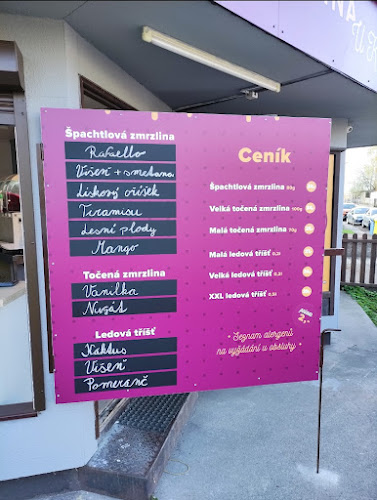 Špachtlová zmrzlina
Rafaello
Višeň + smetana
Lískový oříšek
Tiramisu
Lesní plody
Mango
Točená zmrzlina
Vanilka
Nugát
Ledová tříšť
Kaktus
Višeň
Pomeranč
Ceník
Špachtlová zmrzlina 80g
Velká točená zmrzlina 100g
Malá točená zmrzlina 70g
Malá ledová tříšť 0,2l
Velká ledová tříšť 0,3l
XXL ledová tříšť 0,5l
* Seznam alergenů
na vyžádání u obsluhy *